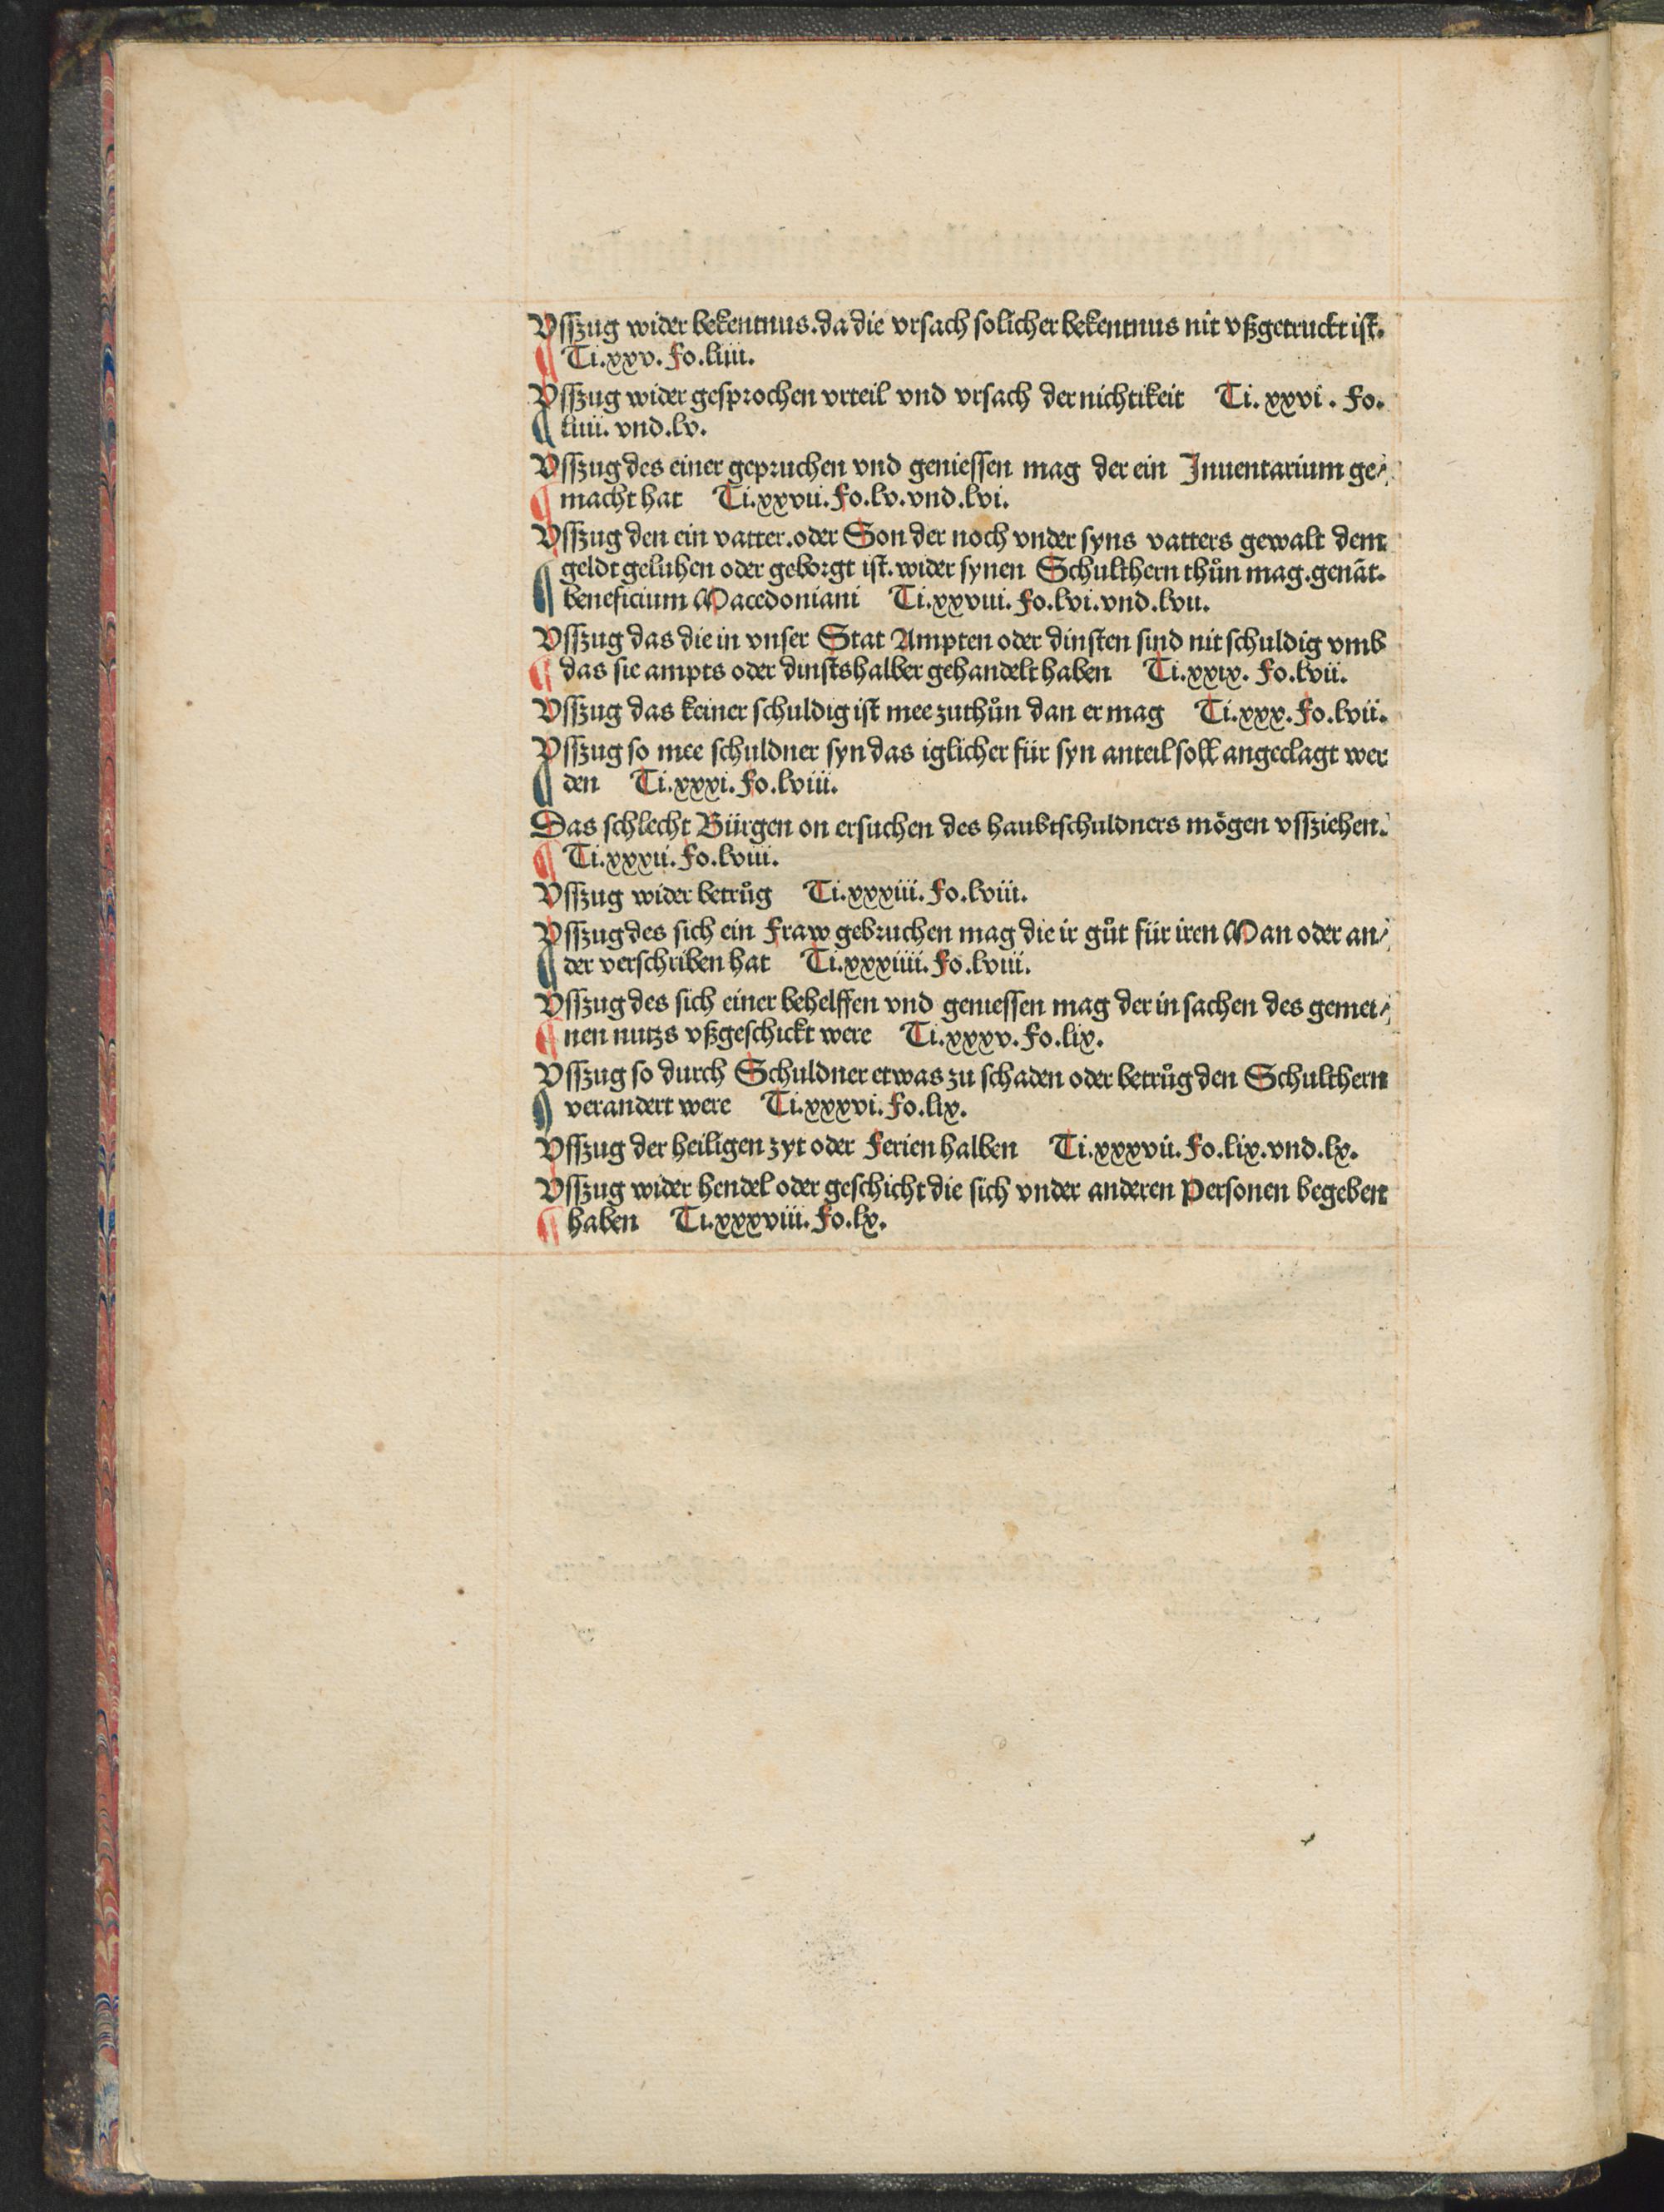 Vſſzug wider bekentnus. da die vrſach ſolicher bekentnus nit vßgetruckt iſt.
¶ Ti. xxv. Fo. liiii.
Vſſzug wider geſprochen vrteil vnd vrſach der nichtikeit Ti. xxvi. Fo.
¶ liiii. vnd. lv.
Vſſzug des einer gepruchen vnd genieſſen mag der ein Inuentarium ge⸗
¶ macht hat Ti. xxvii. Fo. lv. vnd. lvi.
Vſſzug den ein vatter. oder Son der noch vnder ſyns vatters gewalt dem
¶ geldt geluhen oder geborgt iſt. wider ſynen Schulthern thůn mag. genāt.
beneficium Macedoniani Ti. xxviii. Fo. lvi. vnd. lvii.
Vſſzug das die in vnſer Stat Ampten oder dinſten ſind nit ſchuldig vmb
¶ das ſie ampts oder dinſtshalber gehandelt haben Ti. xxix. Fo. lvii.
Vſſzug das keiner ſchuldig iſt mee zuthůn dan er mag Ti. xxx. Fo. lvii.
Vſſzug ſo mee ſchuldner ſyn das iglicher für ſyn anteil ſoll angeclagt wer
¶ den Ti. xxxi. Fo. lviii.
Das ſchlecht Bürgen on erſuchen des haubtſchuldners mögen vſſziehen.
¶ Ti. xxxii. Fo. lviii.
Vſſzug wider betrůg Ti. xxxiii. Fo. lviii.
Vſſzug des ſich ein Fraw gebruchen mag die ir gůt für iren Man oder an⸗
¶ der verſchriben hat Ti. xxxiiii. Fo. lviii.
Vſſzug des ſich einer behelffen vnd genieſſen mag der in ſachen des gemei⸗
¶ nen nutzs vßgeſchickt were Ti. xxxv. Fo. lix.
Vſſzug ſo durch Schuldner etwas zu ſchaden oder betrůg den Schulthern
¶ verandert were Ti. xxxvi. Fo. lix.
Vſſzug der heiligen zyt oder Ferien halben Ti. xxxvii. Fo. lix. vnd. lx.
Vſſzug wider hendel oder geſchicht die ſich vnder anderen Perſonen begeben
¶ haben Ti. xxxviii. Fo. lx.